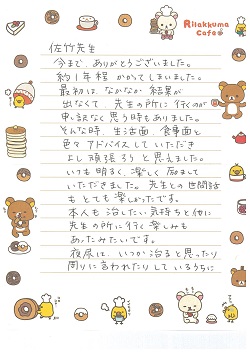 Rilakkuma
Cafe
佐竹先生
今まで、ありがとうございました。
約1年程かかってしまいました。
最初は、なかなか結果が
出なくて、先生の所に行くのが
申し訳なく思う時もありました。
そんな時、生活面、食事面と
色々アドバイスしていただき
よし頑張ろうと思えました。
いつも明るく、楽しく励まして
いただきました。先生との世間話
もとても楽しかったです。
本人も治したい気持ちと他に
先生の所に行く楽しみも
あったみたいです。
夜尿は、いつか治ると思ったり
周りに言われたりしているうちに